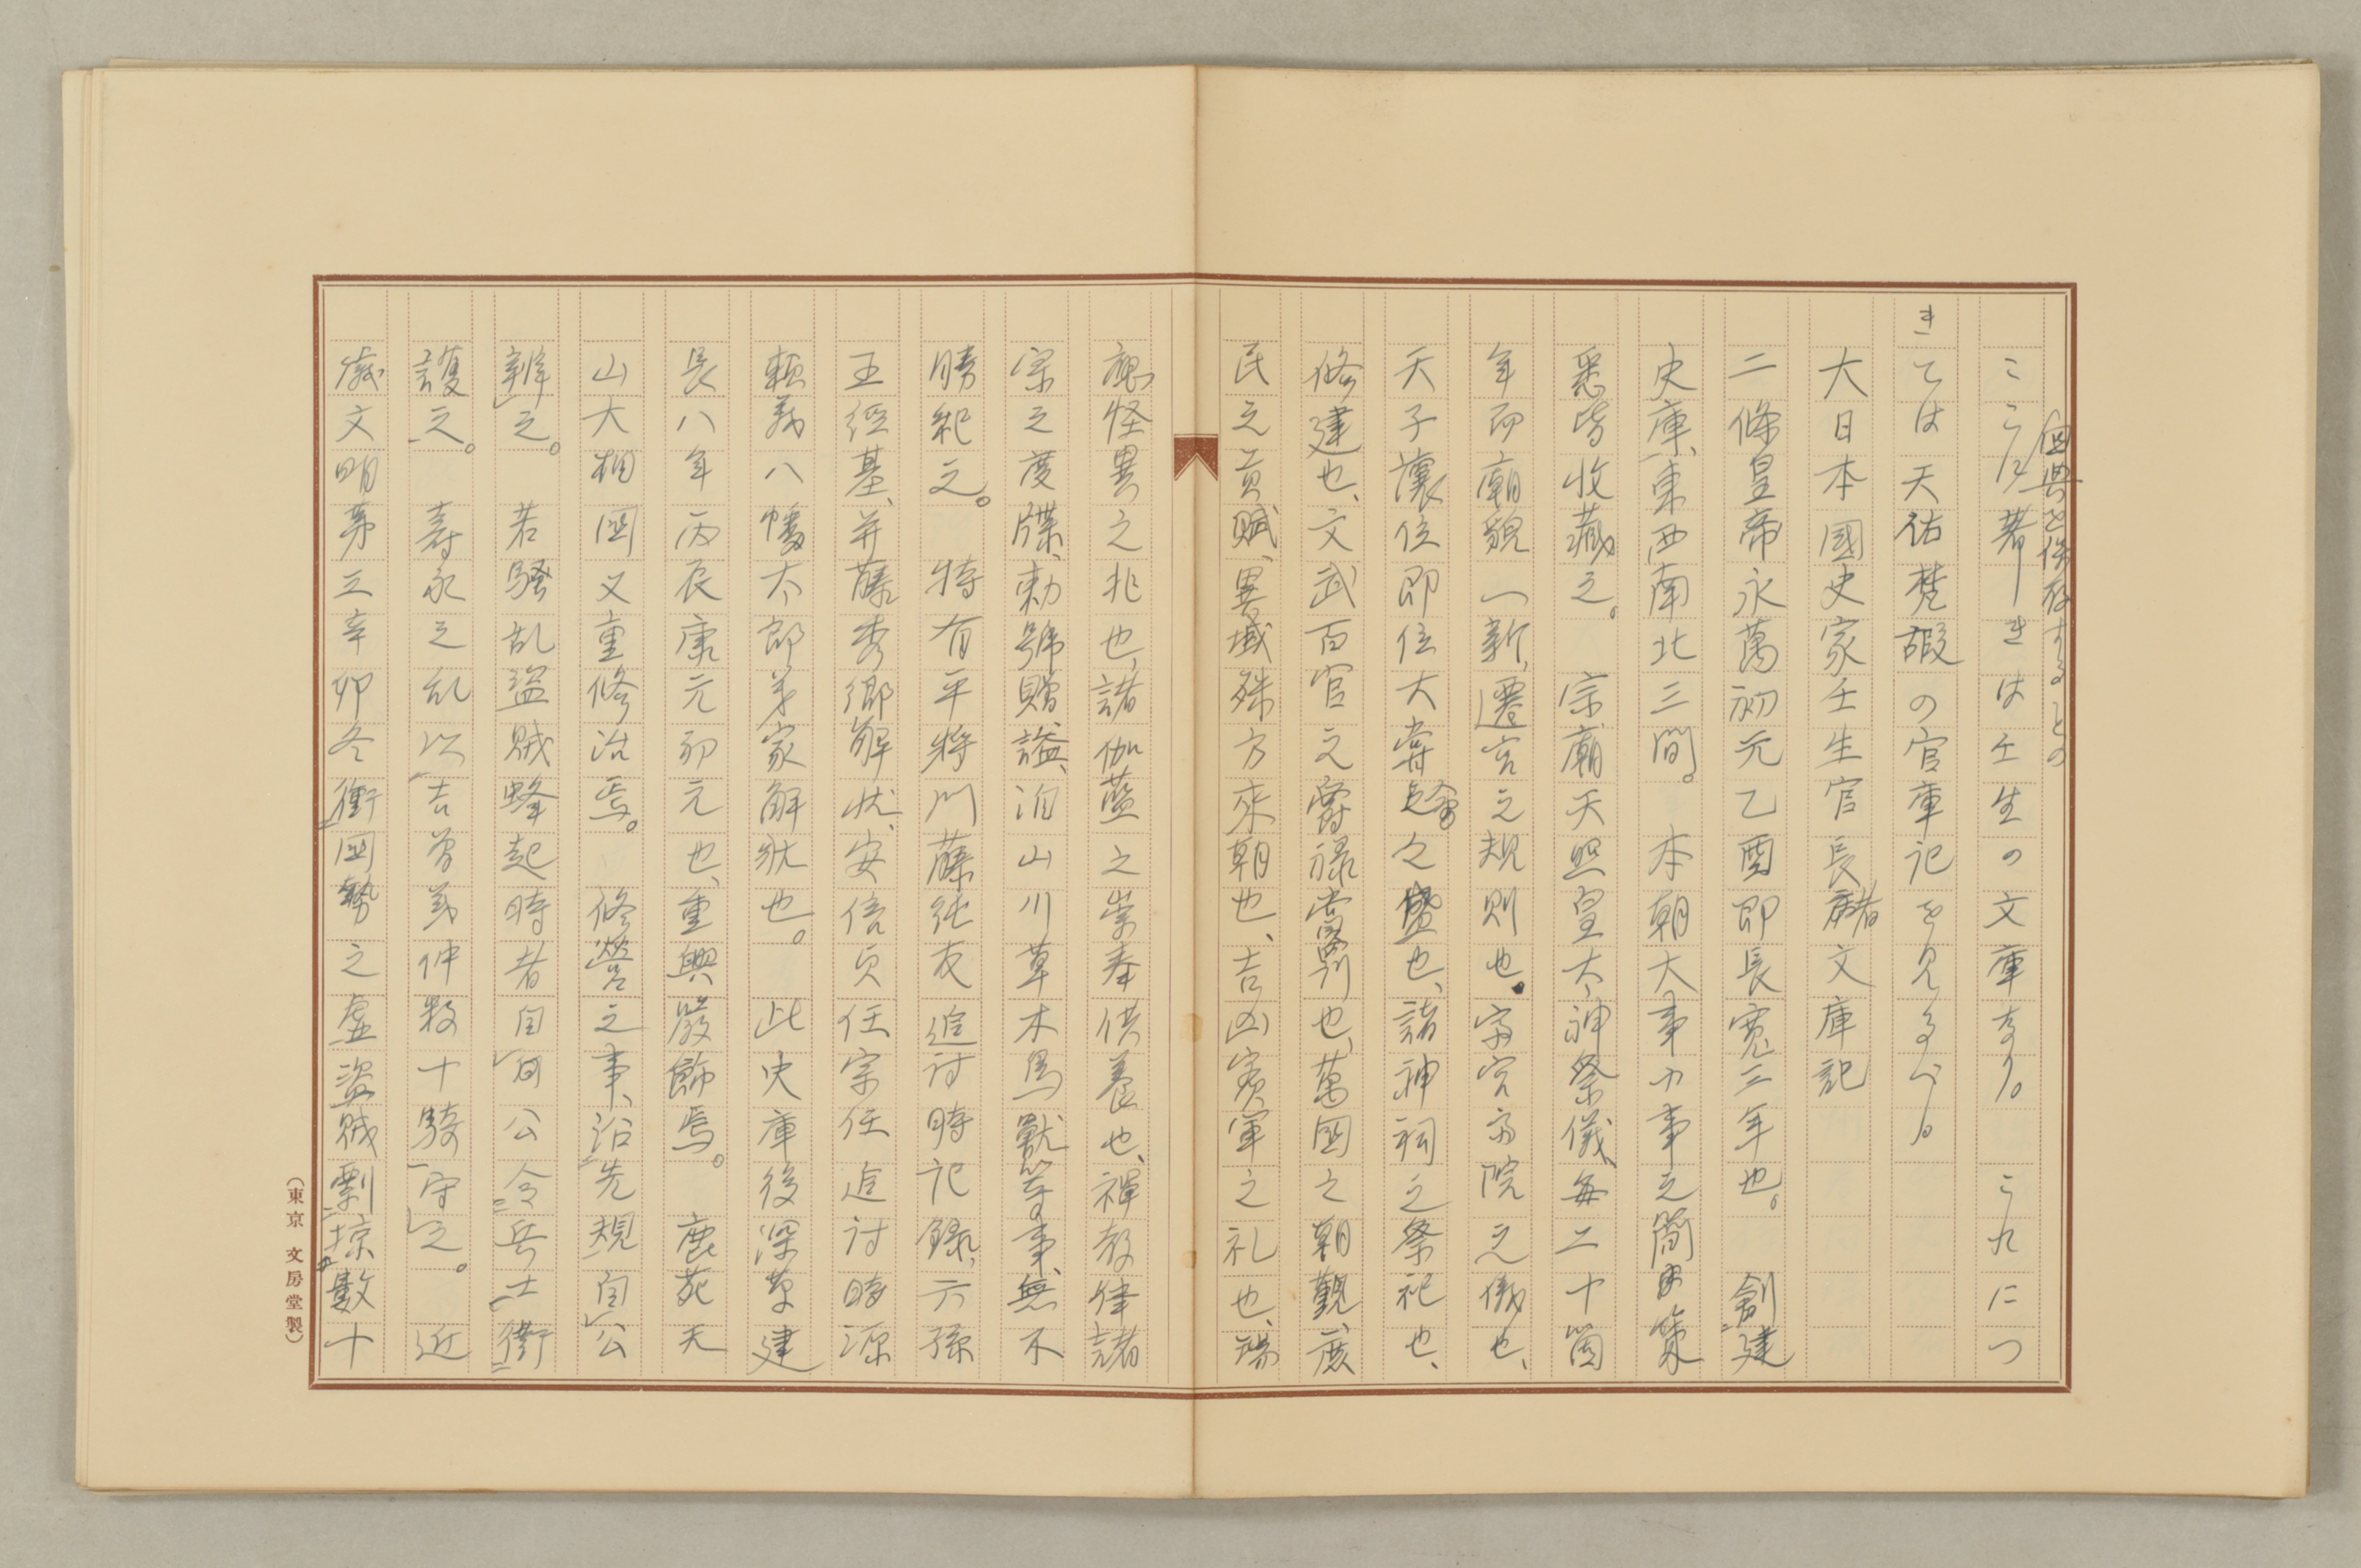 国典を保存するとの
こゝに著しきは壬生の文庫なり。これにつ
きては天祐梵嘏の官庫記を見るべし
大日本國史家壬生官長者文庫記
二條皇帝永萬初元乙酉即長寛三年也。創建
史庫、東西南北三間。本朝大事小事之簡策
悉皆收藏之。宗廟天照皇太神祭儀、毎二十箇
年而廟貌一新、遷宮之規則也。齋宮齋院之儀也、
天子讓位即位大嘗會之盛也、諸神祠之祭祀也、
修建也、文武百官之爵禄賞罰也、萬國之朝觀、庶
民之貢賦、異域殊方來朝也、吉凶賓軍之礼也、瑞
應怪異之兆也、諸伽藍之崇奉供養也、禪教律諸
宗之度牒、勅號贈謚、洎山川草木鳥獸等事、無不
牓紀之。特有平将門藤純友追討時記録、六孫
王經基、并藤秀郷解状、安倍貞任宗任追討時源
頼義八幡太郎義家解状也。此史庫後深草建
長八年丙辰康元初元也、重興嚴飾焉。鹿苑天
山大相国又重修治焉。修營之事、沿先規自公
辨之。若騒乱盗賊蜂起時者自公令兵士衛
護之。壽永之乱以木曽義仲数十騎守之。近
歳文明第三辛卯冬衝国勢之虚盗賊剽掠數十
（東京 文房堂製）